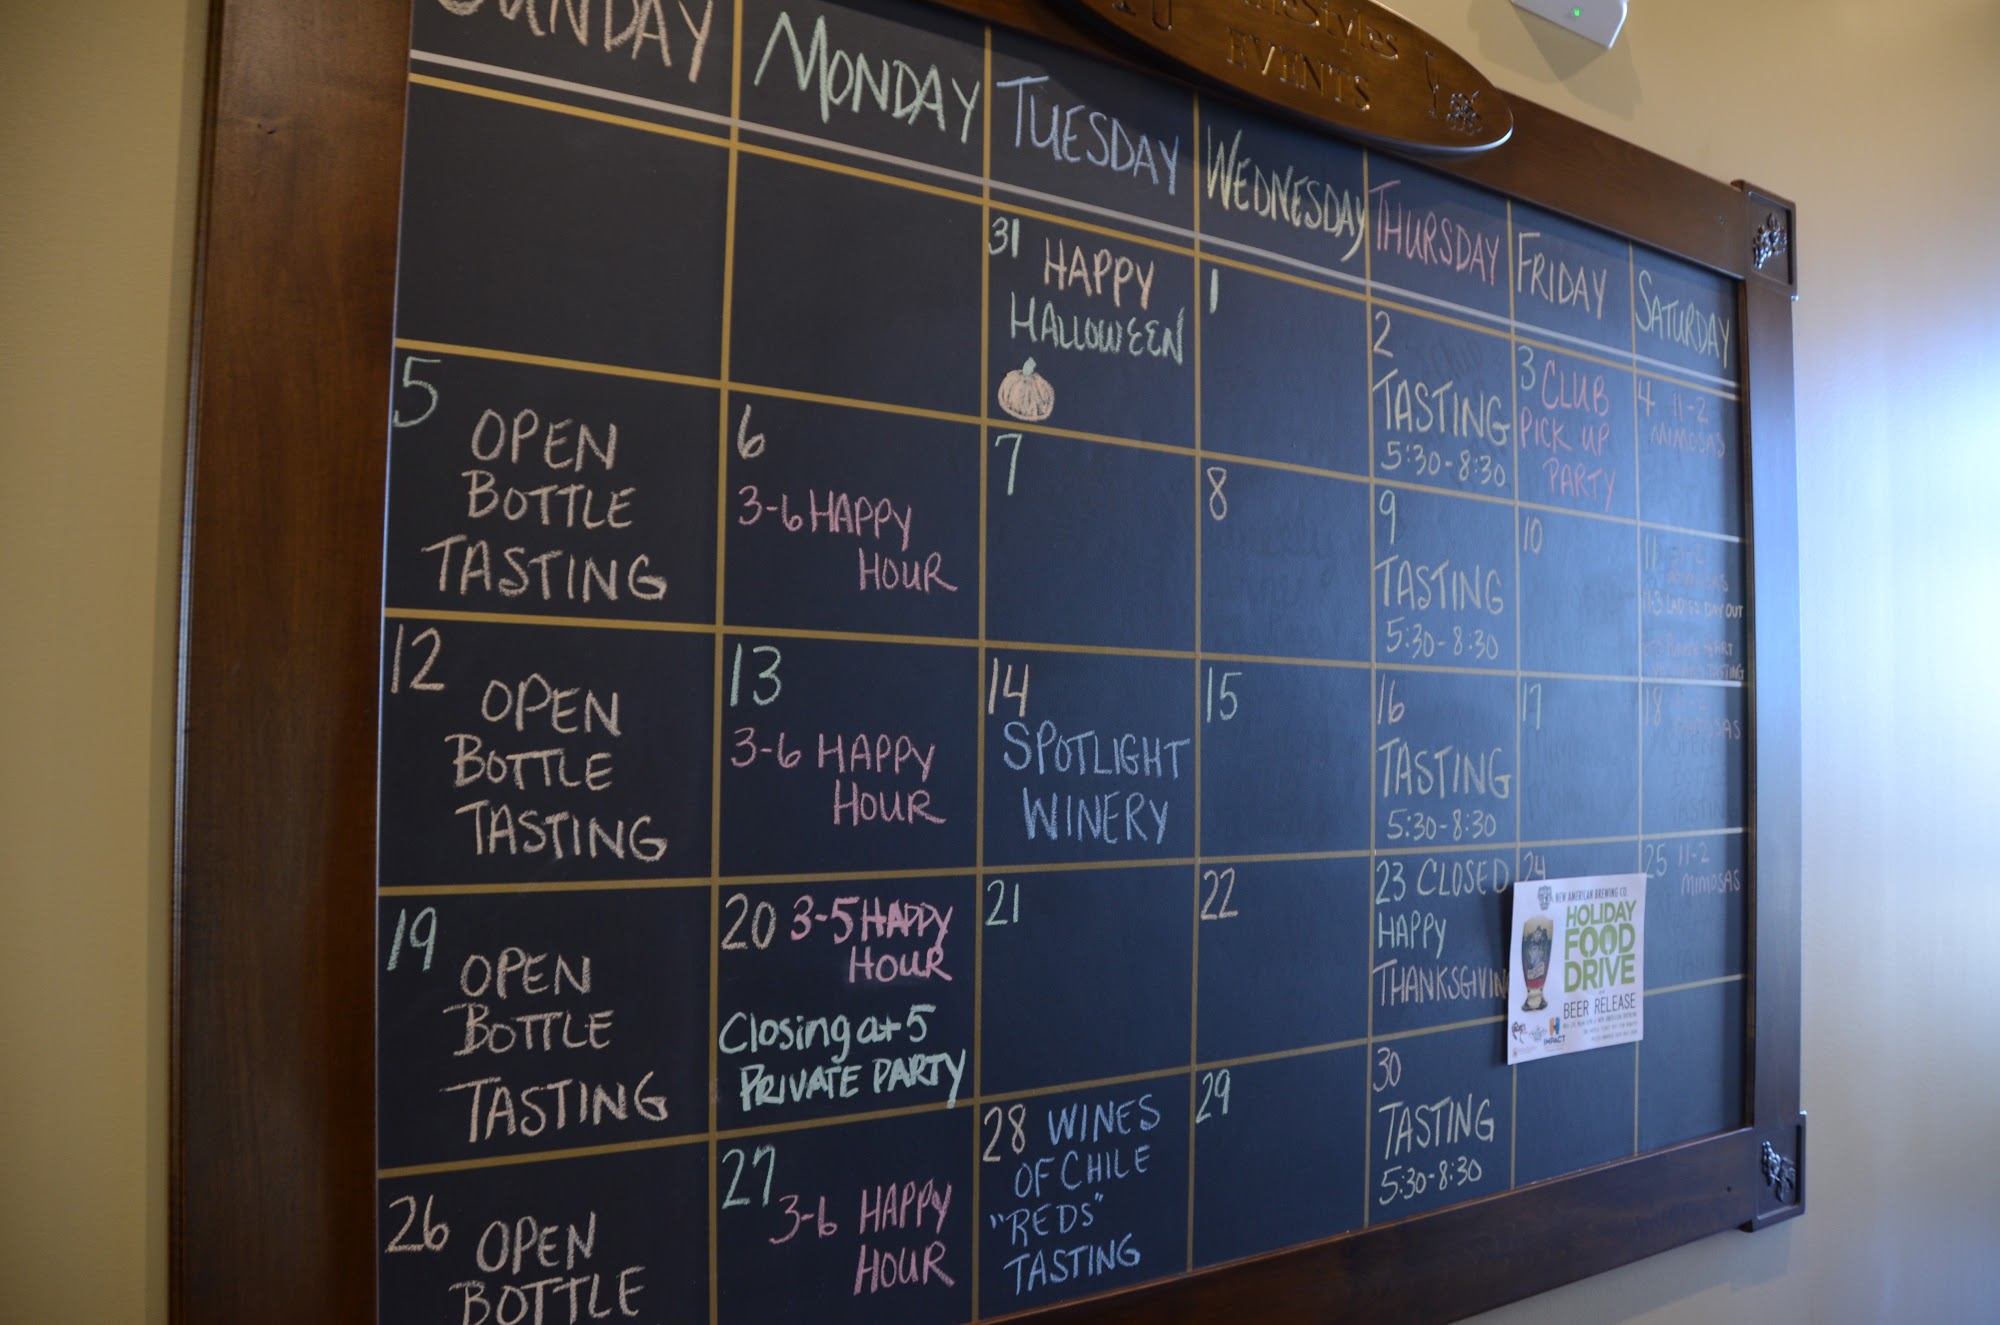 neStyles
EVENTS
SUNDAY
MONDAY
TUESDAY
WEDNESDAY
THURSDAY
FRIDAY
SATURDAY
31 HAPPY
HALLOWEEN
1
2
TASTING
5:30-8:30
3 CLUB
PICK UP
PARTY
4 11-2
MIMOSAS
5
OPEN
BOTTLE
TASTING
6
3-6 HAPPY
HOUR
7
8
9
TASTING
5:30-8:30
10
11
11-3 LADIES DAY OUT
TASTING
12
OPEN
BOTTLE
TASTING
13
3-6 HAPPY
HOUR
14
SPOTLIGHT
WINERY
15
16
TASTING
5:30-8:30
17
18 11-2
19
OPEN
BOTTLE
TASTING
20 3-5 HAPPY
HOUR
Closing at 5
PRIVATE PARTY
21
22
23 CLOSED
HAPPY
THANKSGIVIN
24
NEW AMERICAN BREWING CO.
HOLIDAY
FOOD
DRIVE
BEER RELEASE
IMPACT
25 11-2
MIMOSAS
26
OPEN
BOTTLE
27
3-6 HAPPY
HOUR
28 WINES
OF CHILE
"REDS"
TASTING
29
30
TASTING
5:30-8:30